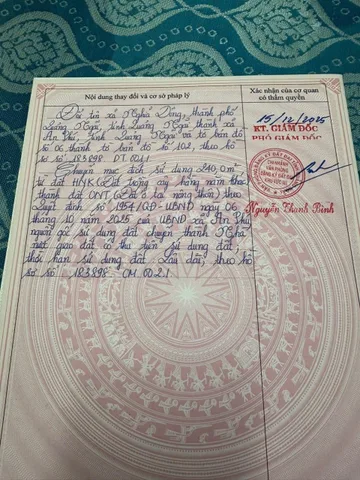 Nội dung thay đổi và cơ sở pháp lý
Xác nhận của cơ quan
có thẩm quyền
Đổi tên xã Nghĩa Dõng, thành phố
Quảng Ngãi, tỉnh Quảng Ngãi thành xã
An Phú, tỉnh Quảng Ngãi và tờ bản đồ
số 06 thành tờ bản đồ số 102, theo hồ
sơ số 183898. DT.0041.
Chuyển mục đích sử dụng 240,0m²
từ đất HNK (Đất trồng cây hàng năm khác)
thành đất ONT (Đất ở tại nông thôn) theo
Quyết định số 1954/QĐ-UBND ngày 06
tháng 10 năm 2025 của UBND xã An Phú
nguồn gốc sử dụng đất chuyển thành Nhà
nước giao đất có thu tiền sử dụng đất;
thời hạn sử dụng đất: Lâu dài; theo hồ
sơ số 183898. CM.0021.
15/12/2025
KT. GIÁM ĐỐC
PHÓ GIÁM ĐỐC
CHI NHÁNH
VĂN PHÒNG
ĐĂNG KÝ ĐẤT ĐAI
KHU VỰC
Nguyễn Thanh Bình